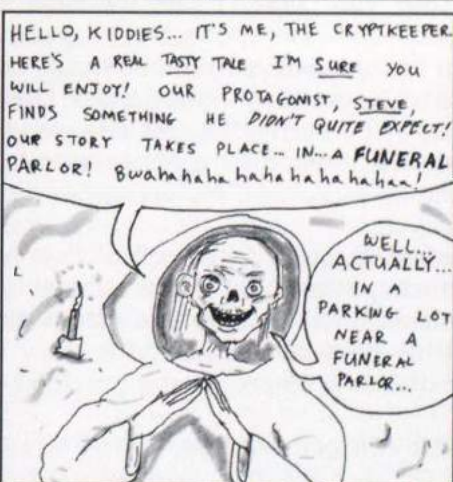 HELLO, KIDDIES... IT'S ME, THE CRYPTKEEPER
HERE'S A REAL TASTY TALE I'M SURE YOU
WILL ENJOY! OUR PROTAGONIST, STEVE,
FINDS SOMETHING HE DIDN'T QUITE EXPECT!
OUR STORY TAKES PLACE... IN... A FUNERAL
PARLOR! Bwahahahahahahahahahaa!
WELL...
ACTUALLY...
IN A
PARKING LOT
NEAR A
FUNERAL
PARLOR...